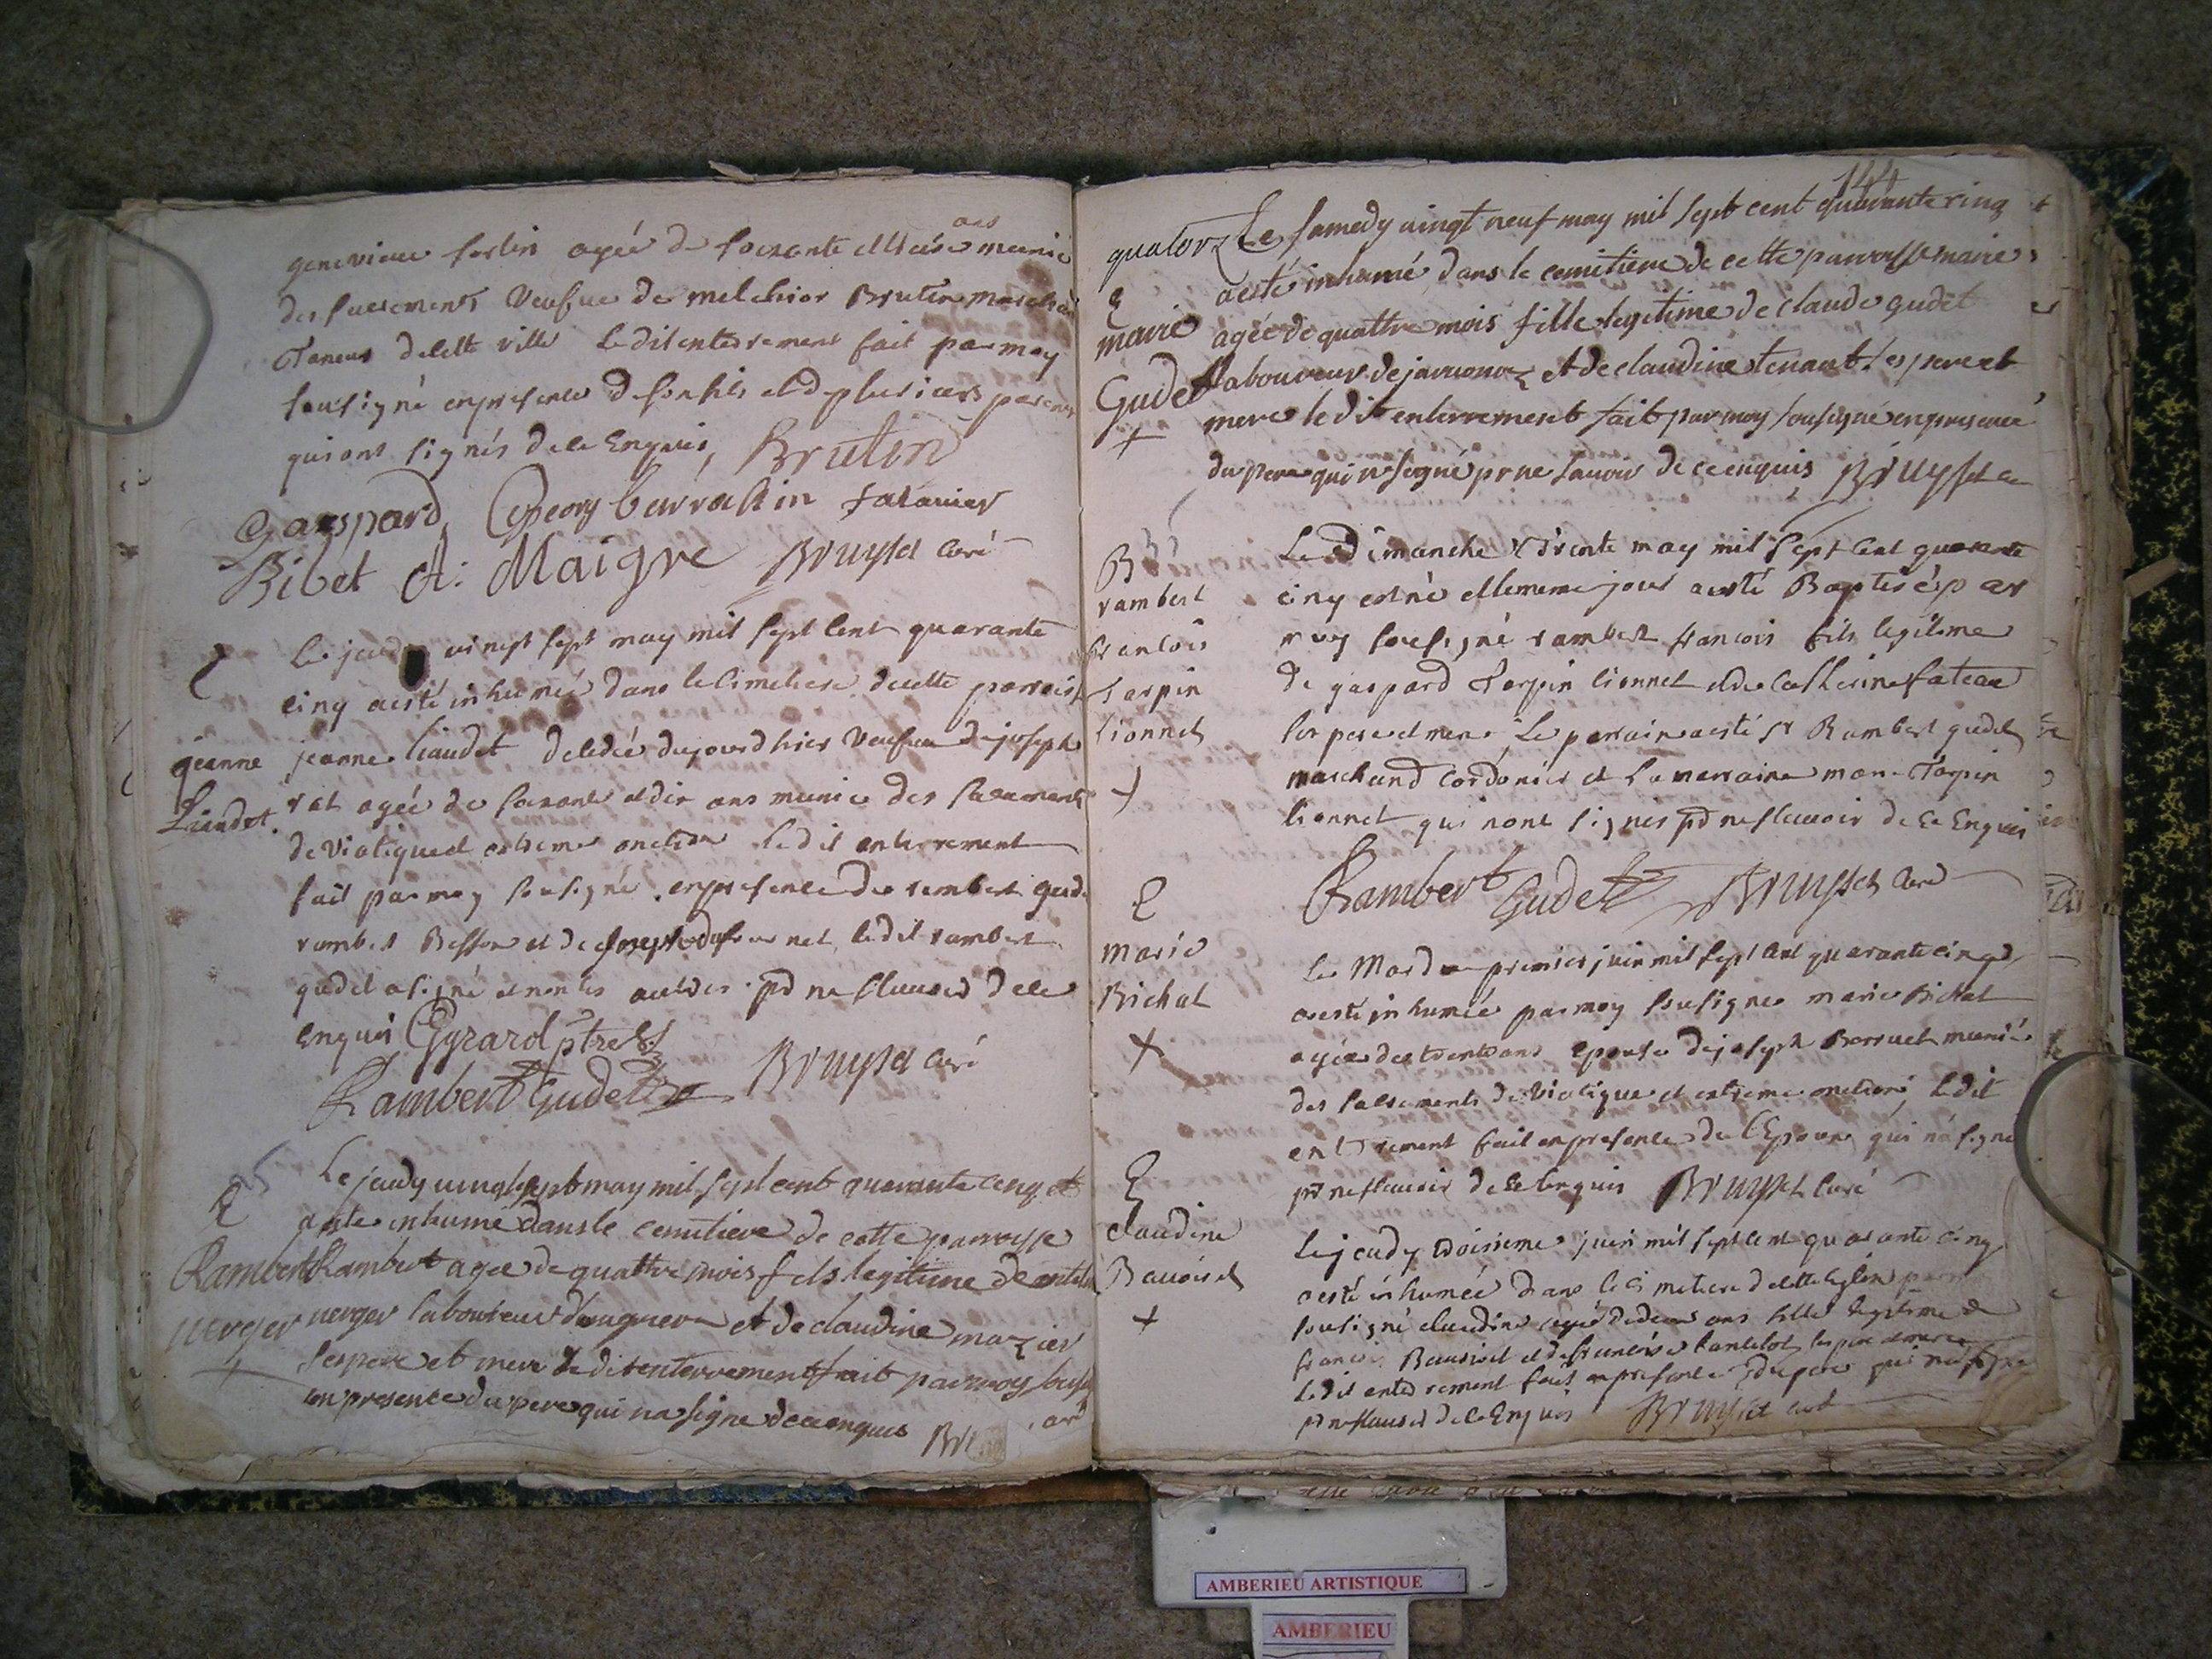 ans
genevieve agée de soixante et treise munie
des sacrements veufve de melchior Brutin marchand
Taneur de cette ville Ledit enterrement fait par moy
sousigné en presence de son fils et de plusieurs parents
qui ont signés de ce Enquis, Brutin
Gaespard barrachin
Ribet A: Maigre Bruyset Curé
Le jeudy vingt sept may mil sept cent quarante
cinq a esté inhumée dans le cimetiere de cette paroisse
jeanne Liaudet decedée du jourd hier veufve de joseph
jeanne
Liaudet
agée de soixante et dix ans munie des sacaments
de viatique et extreme onction Ledit enterrement
fait par moy sousigné en presence de rambert gude
rambert Besson et de joseph dufournet ledit rambert
gudet a signé et non les autres pr ne sçavoir de ce
enquis Gyrard ptre
Rambert Gudet Bruyset Curé
Le jeudy vingt sept may mil sept cent quarante cinq
a este inhumé dans le cemitiere de cette parroisse
Rambert agee de quattre mois fils legitime de
Rambert
nerger
nerger laboureur et de claudine mazier
ses pere et mere le dit enterrement fait par moy
en presence du pere qui na signe de ce enquis
144
quatorz Le samedy vingt neuf may mil sept cent quarante cinq
a esté inhumé dans le cemitiere de cette parroisse marie
agée de quattre mois fille legitime de claude gudet
marie
Gudet
laboureur de et de claudine tenant ses pere et
mere le dit enterrement fait par moy sousigné en presence
du pere qui n signé pr ne savoir de ce enquis Bruyset
B
rambert
francois
Tarpin
Lionnet
Le Dimanche Trente may mil sept cent quarante
cinq est né et le meme jour a esté Baptisé par
moy sousigné rambert francois fils legitime
de gaspard Tarpin lionnet et de Catherine
ses pere et mere Le parrain a esté sr Rambert gudet
marchand Cordonier et La marraine Tarpin
lionnet qui n ont signés pr ne sçavoir de ce Enquis
Rambert Gudet Bruyset Curé
marie
Bichat
Le Mardy premier juin mil sept cent quarante cinq
a esté inhumée par moy sousigné marie Bichat
agée de trente ans epouse de joseph munie
des sacrements de viatique et extreme onction Ledit
enterrement fait en presence de l'Epoux qui n'a signé
pr ne sçavoir de ce enquis Bruyset Curé
claudine
Bauoiset
Le jeudy troisieme juin mil sept cent quarante cinq
a esté inhumée dans le cimetiere de cette Eglise par
sousigné claudine agée de deux ans fille legitime de
francois et de francoise ses pere et mere
Ledit enterrement fait en presence du pere qui n'a signé
pr ne sçavoir de ce Enquis Bruyset curé
AMBERIEU ARTISTIQUE
AMBERIEU